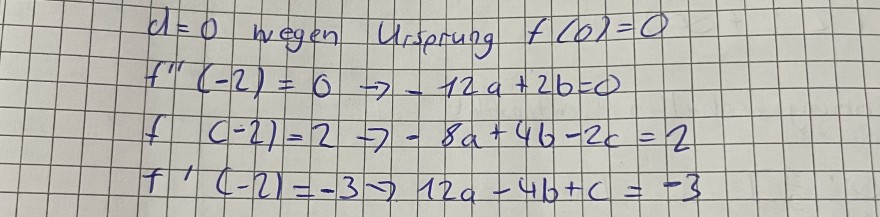 d=0 wegen Ursprung f(0)=0
f''(-2)=0 → -12a+2b=0
f (-2)=2 → -8a+4b-2c=2
f'(-2)=-3→ 12a-4b+c=-3